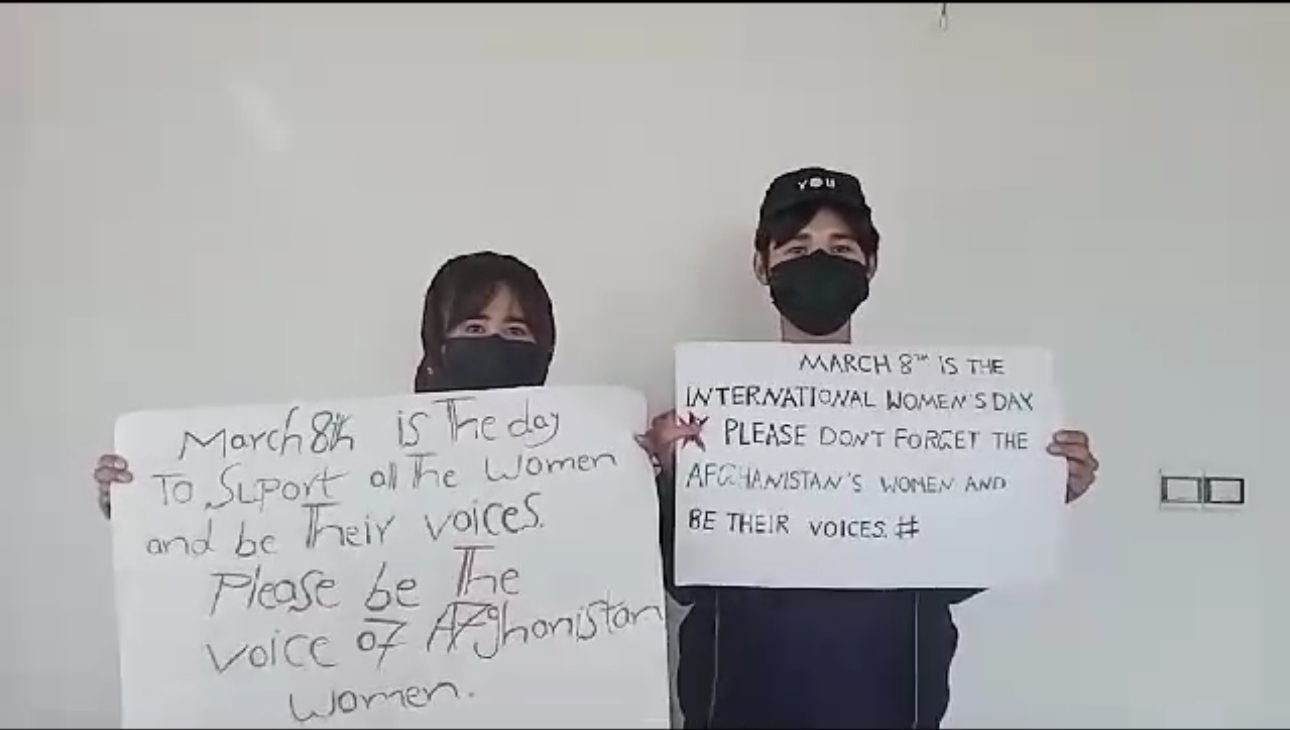 YOU
March 8th is The day
To Suport all The women
and be Their voices.
Please be The
voice of Afghanistan
women.
MARCH 8TH IS THE
INTERNATIONAL WOMEN'S DAY
PLEASE DON'T FORGET THE
AFGHANISTAN'S WOMEN AND
BE THEIR VOICES. #